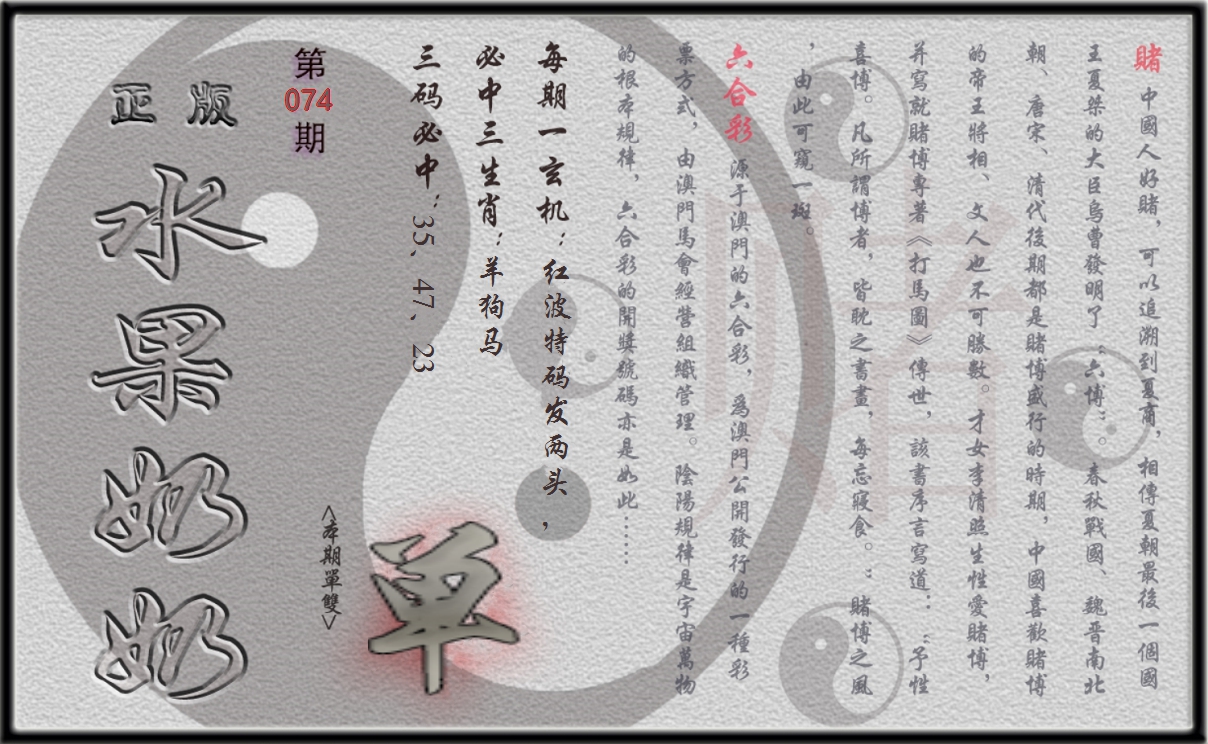 賭 中國人好賭，可以追溯到夏商，相傳夏朝最後一個國
王夏桀的大臣烏曹發明了“六博”。春秋戰國、魏晋南北
朝、唐宋、清代後期都是賭博盛行的時期，中國喜歡賭博
的帝王將相、文人也不可勝數。才女李清照生性愛賭博，
并寫就賭博專著《打馬圖》傳世，該書序言寫道：“予性
喜博。凡所謂博者，皆眈之晝畫，每忘寢食。：賭博之風
，由此可窺一斑。
六合彩 源于澳門的六合彩，爲澳門公開發行的一種彩
票方式，由澳門馬會經營組織管理。陰陽規律是宇宙萬物
的根本規律，六合彩的開獎號碼亦是如此……
每期一玄机：红波特码发两头，
必中三生肖：羊狗马
三码必中：35、47、23
第074期
<本期單雙>
单
正版
水果奶奶
赌